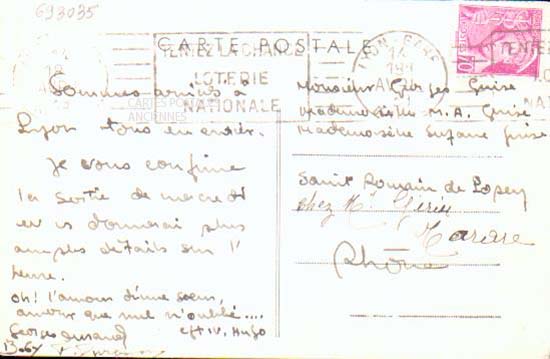 693035
CARTE POSTALE
TENTEZ LA CHANCE
LOTERIE
NATIONALE
CARTES POSTALES
ANCIENNES
Sommes arrivés à
Lyon tous en entier.
Je vous confirme
la sortie de mercredi
et vs donnerai plus
amples détails sur l'
heure.
oh! l'amour d'une soeur,
amour que nul n'oublie....
cft V. Hugo
Georges
Monsieur Georges Guise
Mademoiselle M. A. Guise
Mademoiselle Suzane Guise
Saint Romain de Popey
chez M.
Rhône